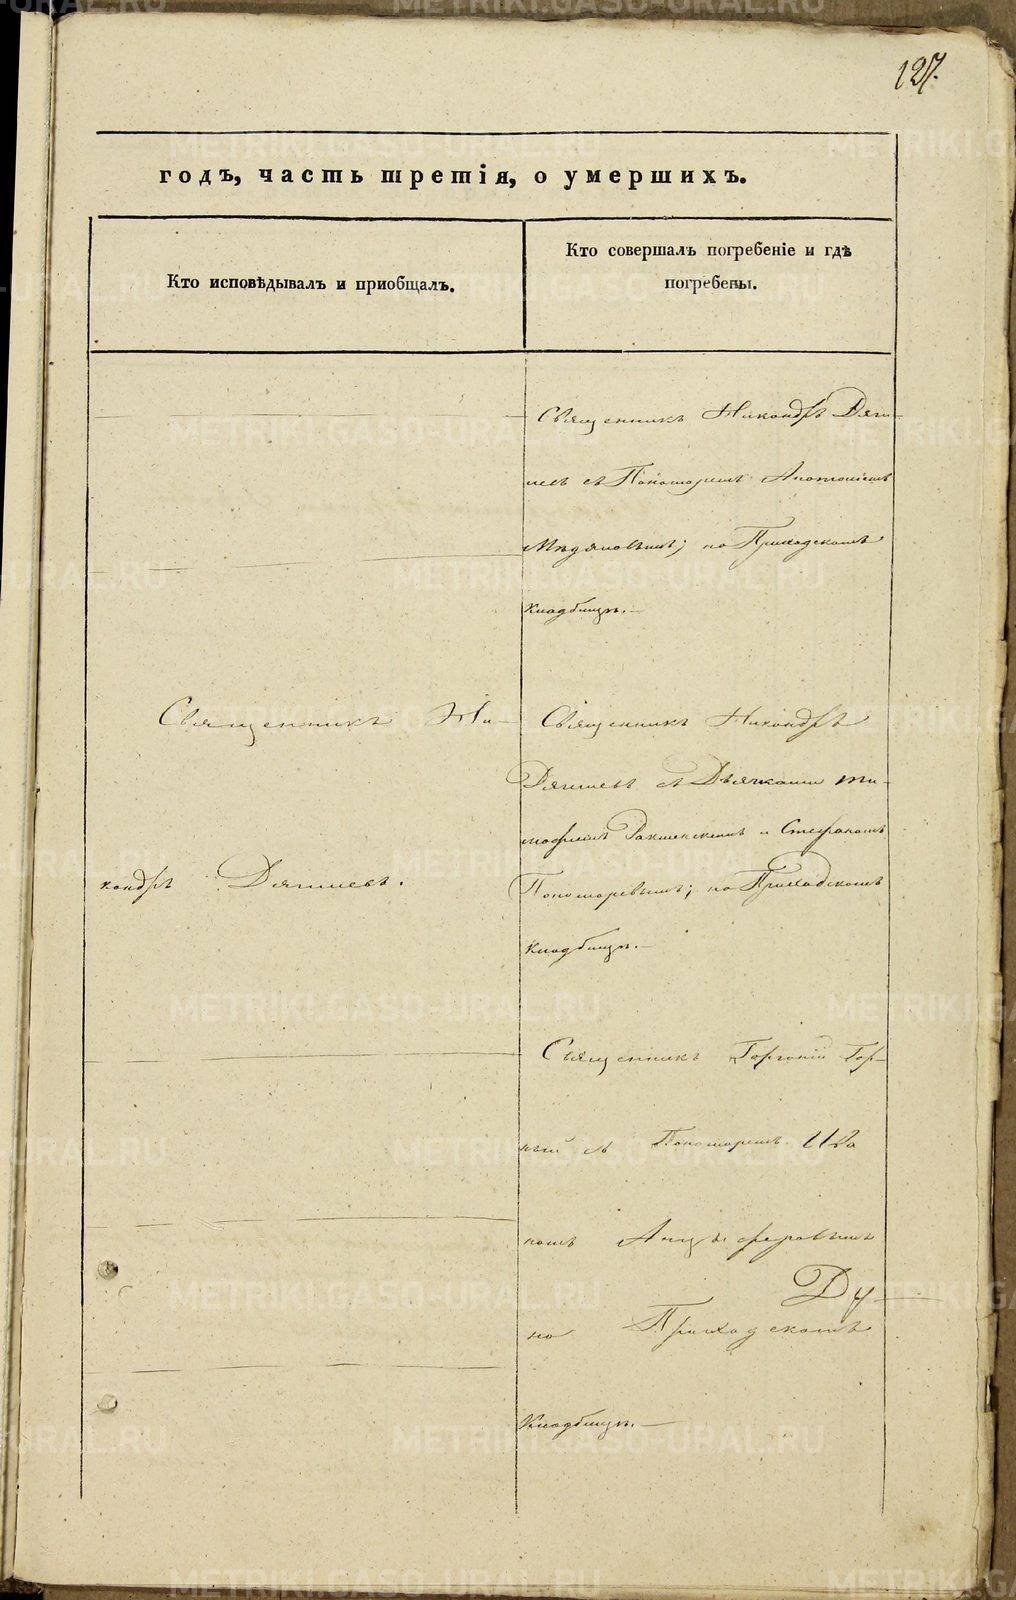 127.
годъ, часть третія, о умершихъ.
Кто исповѣдывалъ и приобщалъ.
Кто совершалъ погребеніе и гдѣ
погребены.
Священникъ Никандръ Дяги-
левъ съ Пономаремъ Антоніемъ
Мѣдяковымъ; на Приходскомъ
Кладбищѣ.
Священникъ Ни-
кандръ Дягилевъ.
Священникъ Никандръ
Дягилевъ съ Дьячками Ти-
мофеемъ и Стефаномъ
Пономаревымъ; на Приходскомъ
Кладбищѣ.
Священникъ Горгоній Гор-
ный съ Пономаремъ Ива
номъ Анцыферовымъ
Ду-
на Приходскомъ
Кладбищѣ.
METRIKI.GASO-URAL.RU